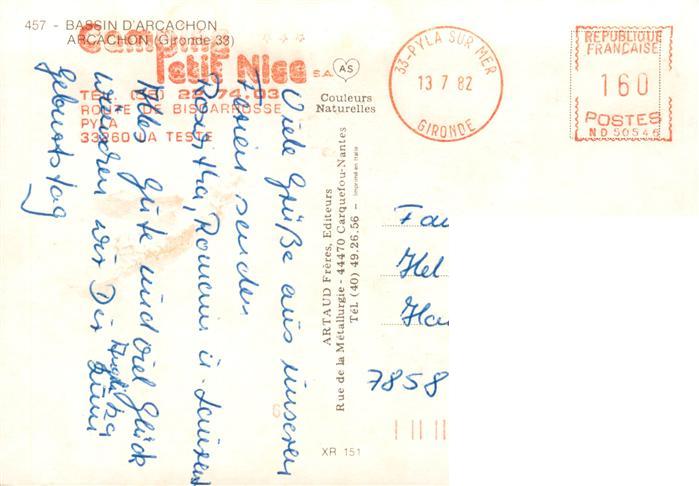 457 - BASSIN D'ARCACHON
ARCACHON (Gironde 33)
Camping
Petit Nice S.A.
TEL (56) 22.74.03
ROUTE DE BISCARROSSE
PYLA
33260 LA TESTE
AS
Couleurs
Naturelles
33-PYLA SUR MER
13 7 82
GIRONDE
REPUBLIQUE
FRANCAISE
160
POSTES
ND 50546
Viele Grüße aus unseren
Ferien senden
Roswitha, Romanis u. Laurent
Alles Gute und viel Glück
wünschen wir Dir
zum
Geburtstag
ARTAUD Frères, Editeurs
Rue de la Métallurgie - 44470 Carquefou-Nantes
Tél. (40) 49.26.56 - Imprimé en Italie
Fa
Hel
Ha
7858
XR 151